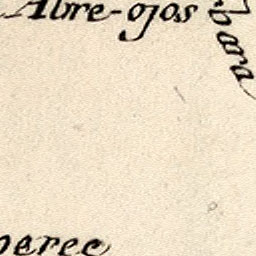 Abre-ojos
bara
peree